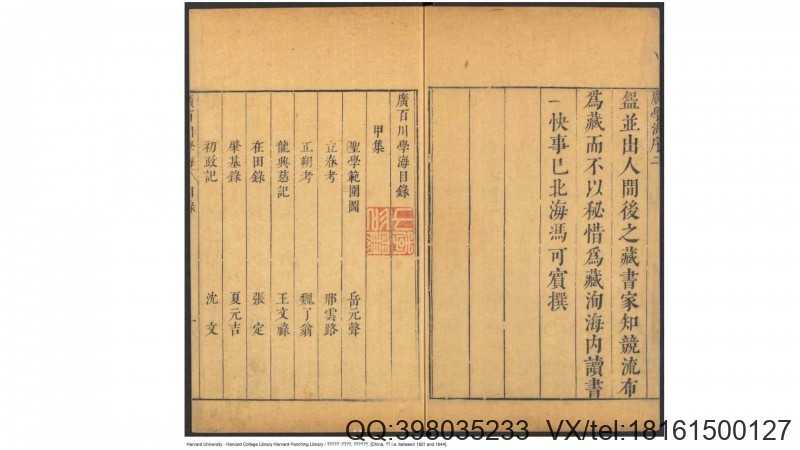 廣學海序二
盤並由人間後之藏書家知競流布
為藏而不以秘惜為藏洵海內讀書
一快事已北海馮可賓撰
廣百川學海目錄
甲集
聖學範圍圖 岳元聲
立春考 邢雲路
正朔考 魏了翁
龍興慈記 王文祿
在田錄 張定
肇基錄 夏元吉
初政記 沈文
廣百川學海 目錄 一
QQ:398035233 VX/tel:18161500127
Harvard University - Harvard College Library Harvard-Yenching Library / ????? :????, ??????. [China, ?? i.e. between 1621 and 1644].